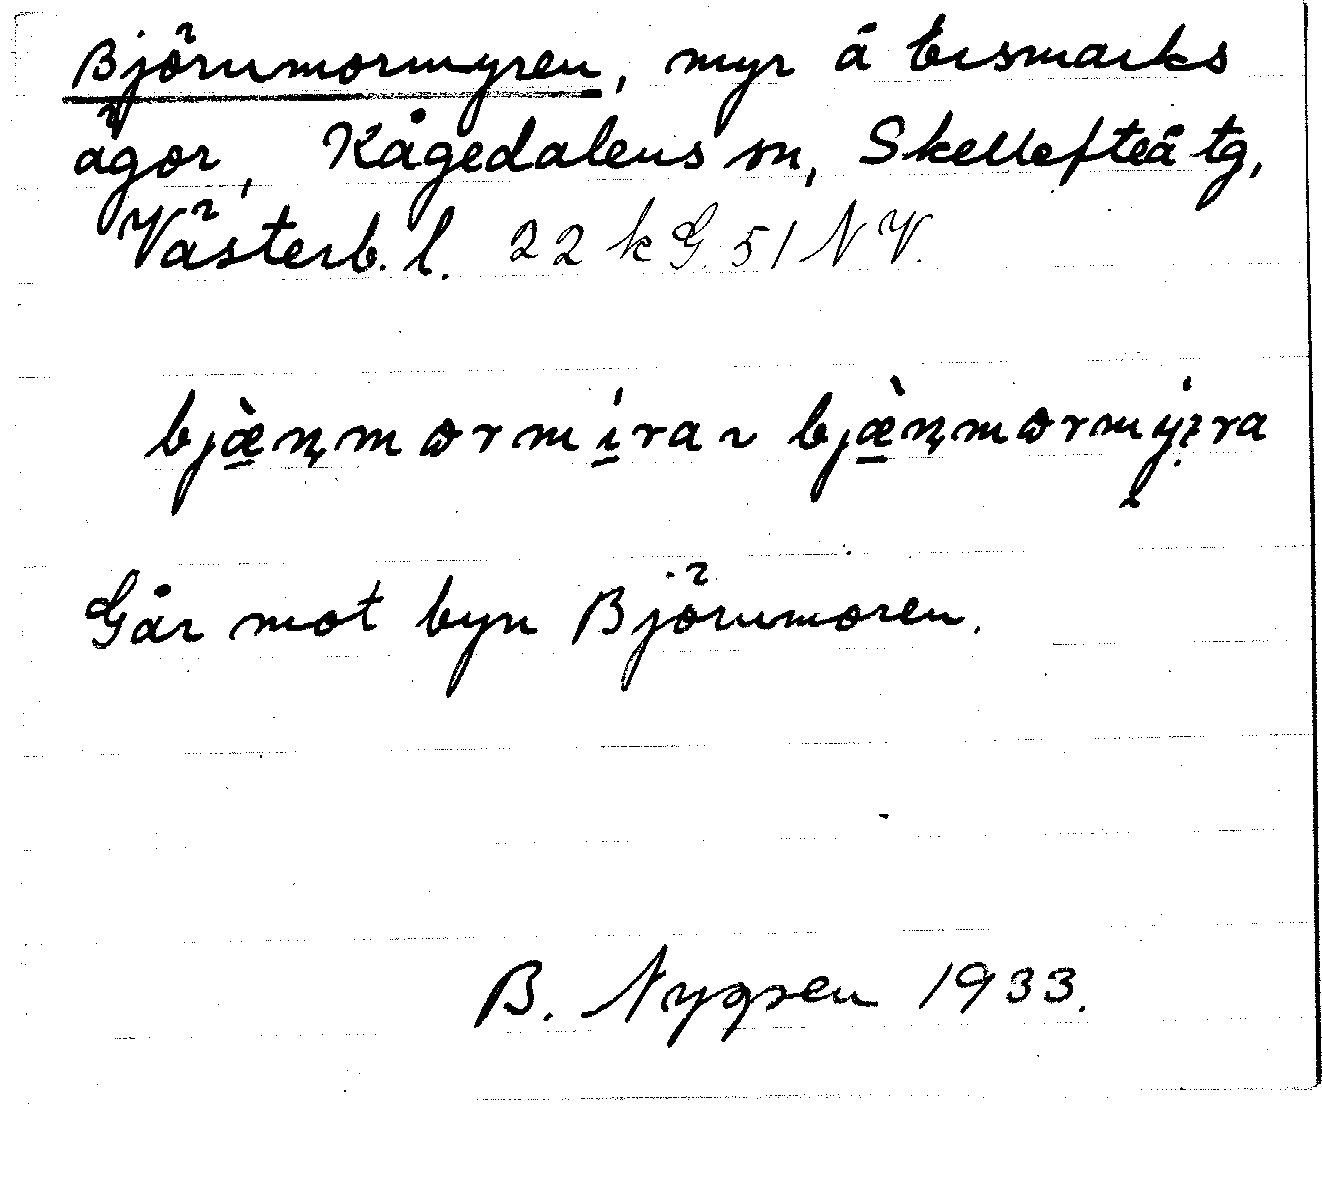 Björnmormyren, myr å Ersmarks
ägor, Kågedalens sn, Skellefteå tg,
Västerb. l. 22 k G. 51 N V.
bjæ̀ṇmormíra ~ bjæ̀ṇmormýira
Går mot byn Björnmoren.
B. Nygren 1933.